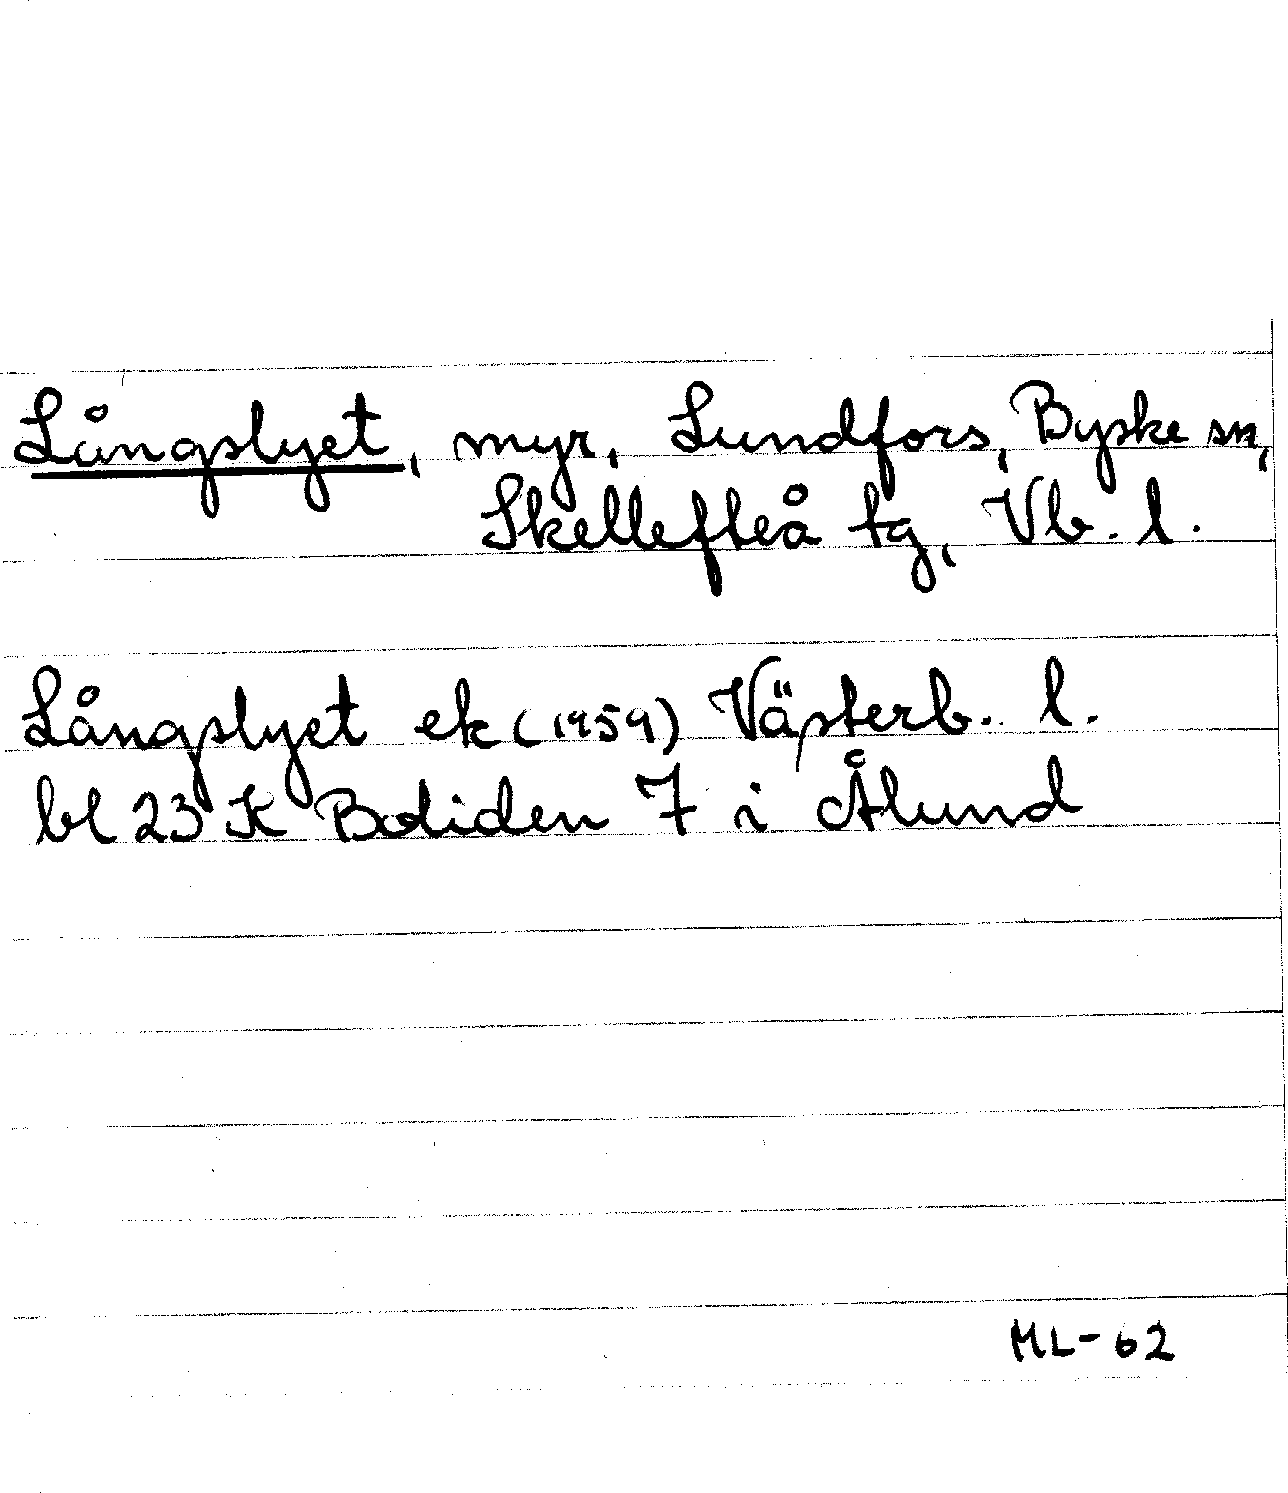 Långslyet, myr, Lundfors, Byske sn,
Skellefteå tg, Vb. l.
Långslyet ek (1959) Västerb. l.
bl 23 K Boliden 7 i Ålund
ML-62